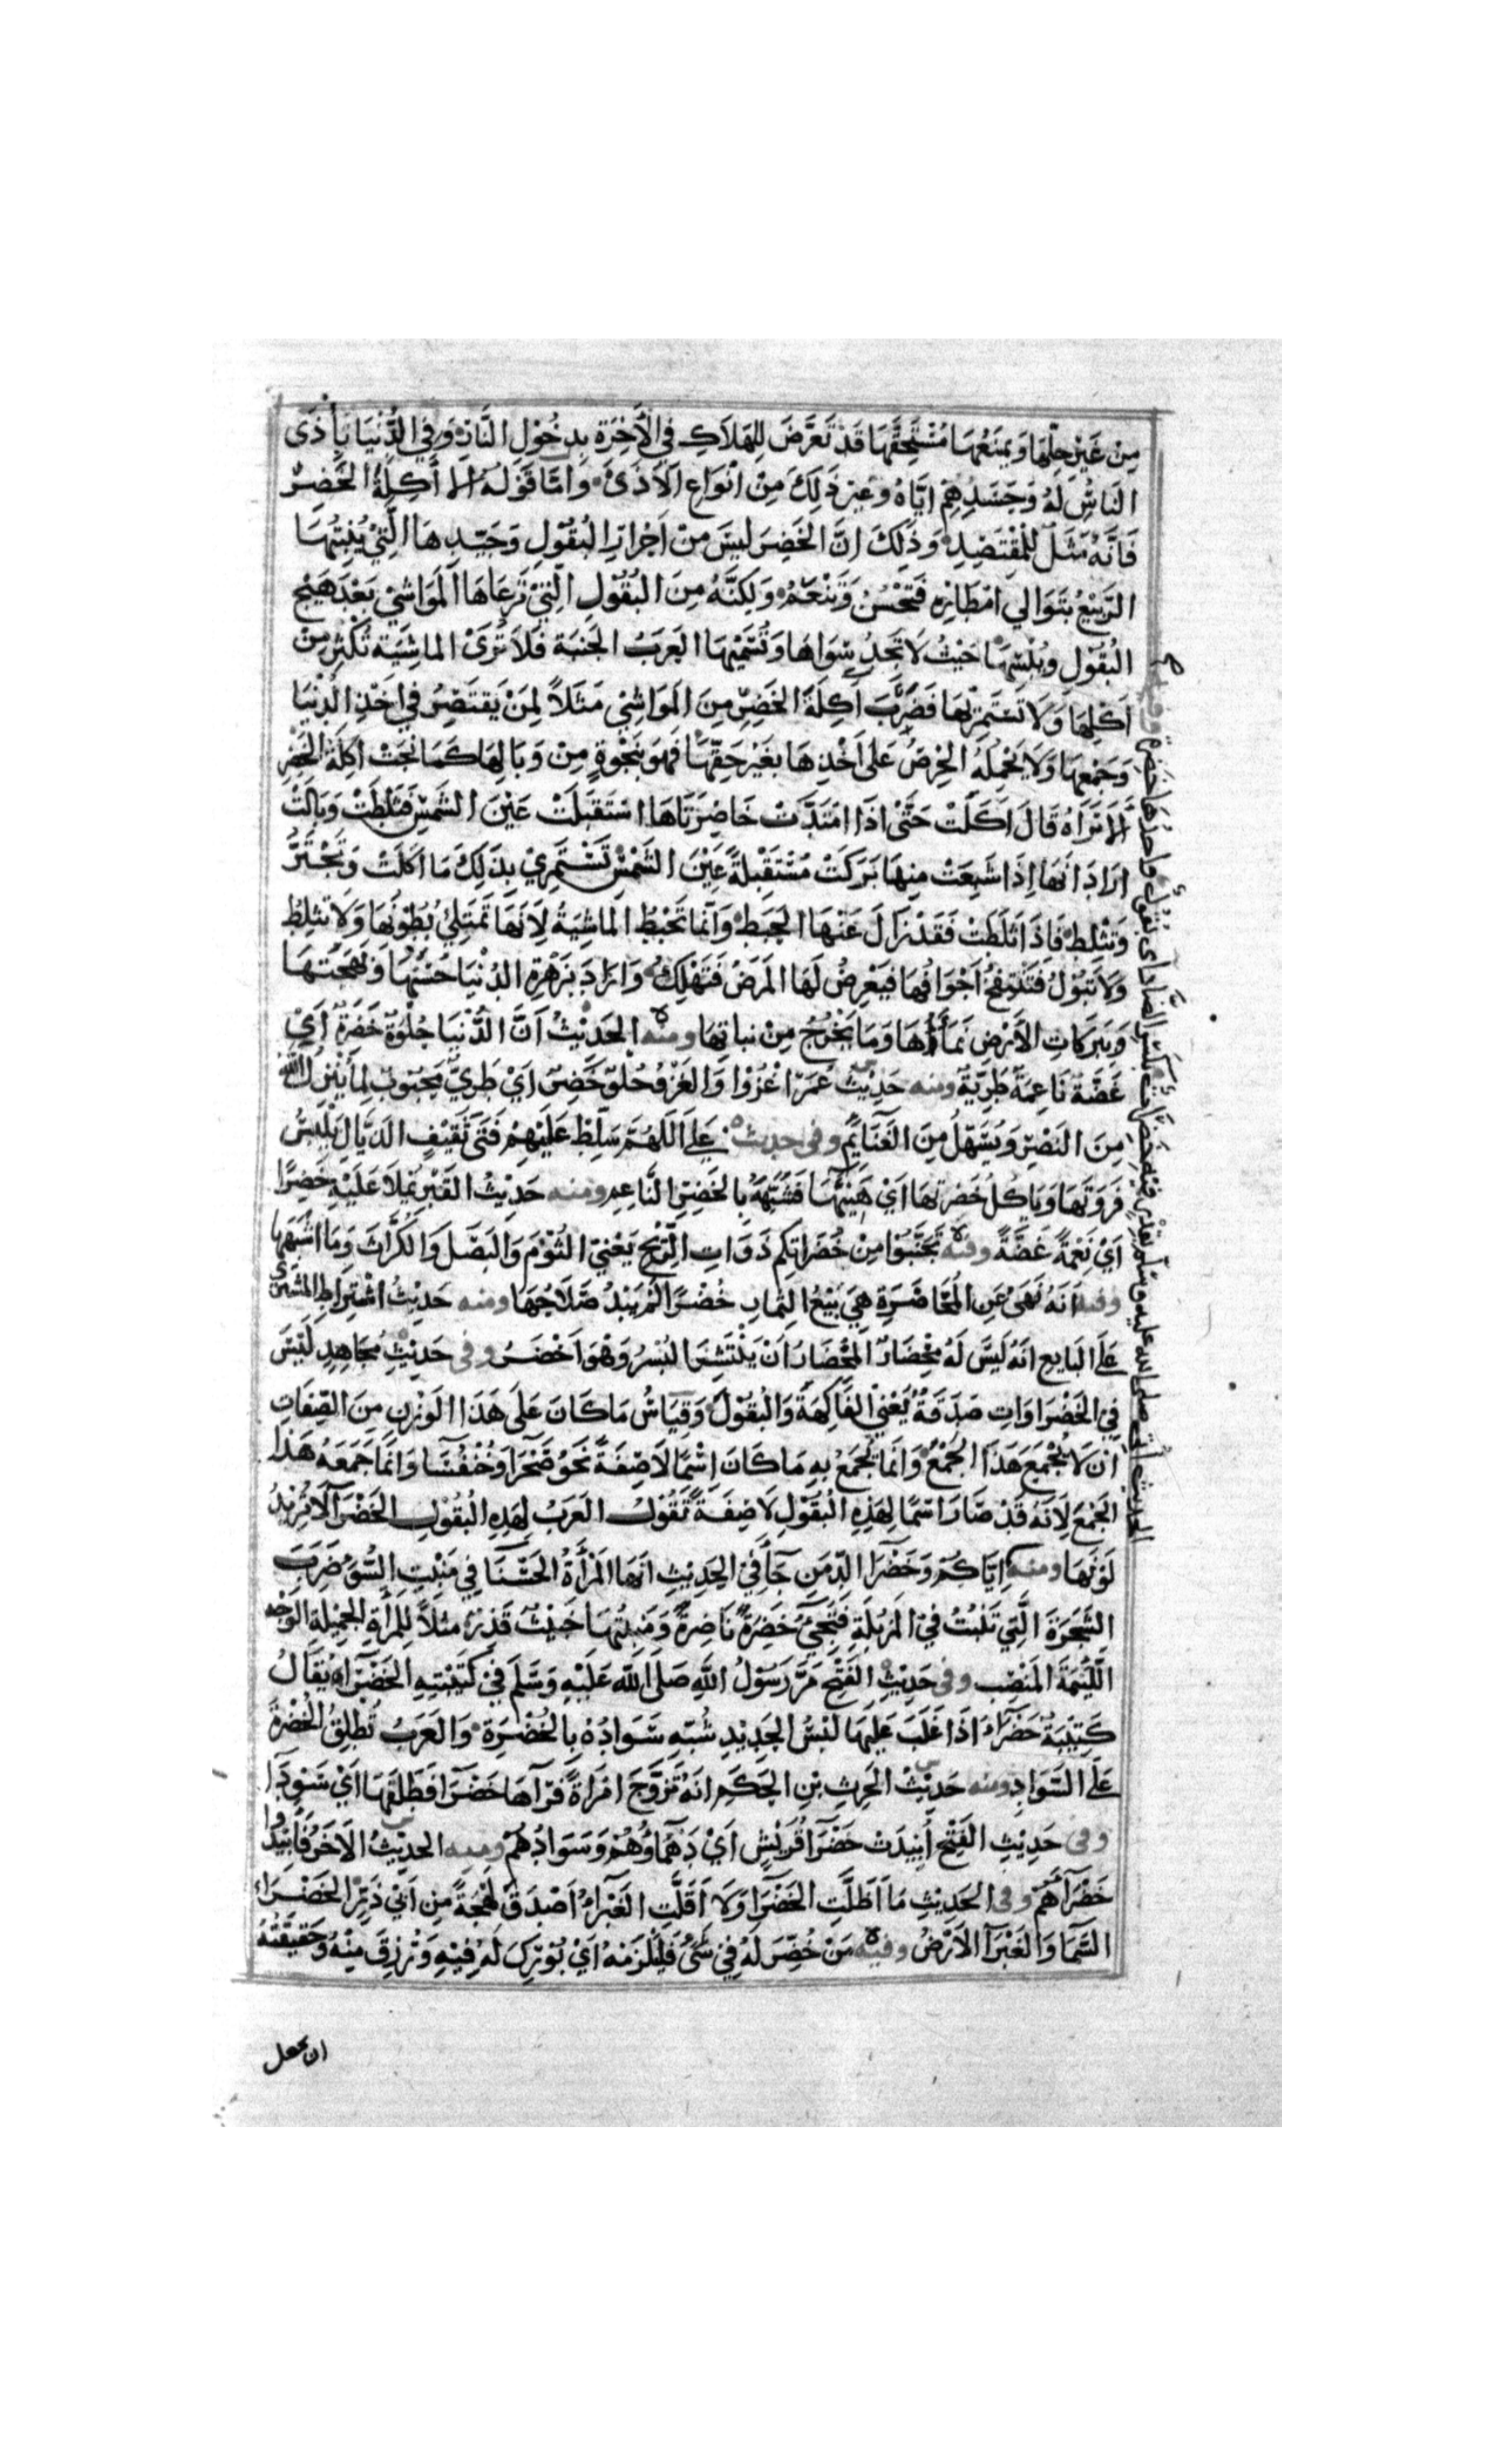 مِنْ غَيْرِ حِلِّهَا وَيَمْنَعُهَا مُسْتَحِقَّهَا قَدْ تَعَرَّضَ لِلهَلَاكِ فِي الْآخِرَةِ بِدُخُولِ النَّارِ وَفِي الدُّنْيَا بِأَذَى
النَّاسِ لَهُ وَحَسَدِهِمْ اِيَّاهُ وَغَيْرِ ذَلِكَ مِنْ اَنْوَاعِ الْاَذَى وَاَمَّا قَوْلُهُ الا أَكِلَةَ الْخَضِرِ
فَاِنَّهُ مَثَلٌ لِلْمُقْتَصِدِ وَذَلِكَ انَّ الخَضِرَ لَيْسَ مِنْ اَحْرَارِ البُقُولِ وَجَيِّدِهَا الَّتِيْ يُنْبِتُهَا
الرَّبِيْعُ بِتَوَالِي اَمْطَارِهِ فَتَحْسُنُ وَتَنْعَمُ وَلَكِنَّهُ مِنَ البُقُولِ الَّتِيْ تَرْعَاهَا المَوَاشِيْ بَعْدَ هَيْجِ
البُقُوْلِ وَيُبْسِهَا حَيْثُ لَا تَجِدُ سِوَاهَا وَتُسَمِّيْهَا العَرَبُ الجَنْبَةَ فَلَا تُرَى الماشِيَة تُكْثِرُ مِنْ
اَكْلِهَا وَلَا تَسْتَمْرِئُهَا فَضَرَبَ اَكِلَةَ الخَضِرِ مِنَ المَوَاشِيْ مَثَلاً لِمَنْ يَقْتَصِرُ فِي اَخْذِ الدُّنْيَا
وَجَمْعِهَا وَلَا يَحْمِلُهُ الحِرْصُ عَلَى اَخْذِهَا بِغَيْرِ حَقِّهَا فَهُوَ بِنَجْوَةٍ مِنْ وَبَالِهَا كَمَا نَجَتْ اكِلَةُ الخَضِرِ
اَلَا تَرَاهُ قَالَ اَكَلَتْ حَتَّى اذَا امْتَدَّتْ خَاصِرَتَاهَا اسْتَقْبَلَتْ عَيْنَ الشَّمْسِ فَثَلَطَتْ وَبَالَتْ
ارَادَ اَنَّهَا اِذَا شَبِعَتْ مِنهَا بَرَكَتْ مُسْتَقْبِلَةً عَيْنَ الشَّمْسِ تَسْتَمْرِيْ بِذَلِكَ مَا اَكَلَتْ وَتَجْتَرُّ
وَتَثْلِطُ فَاِذَا ثَلَطَتْ فَقَدْ زَالَ عَنْهَا الحَبَطُ وَاِنَّمَا تَحْبَطُ المَاشِيَةُ لِاَنَّهَا تَمْتَلِئُ بُطُوْنُهَا وَلَا تَثْلِطُ
وَلَا تَبُوْلُ فَتَنْتَفِخُ اَجْوَافُهَا فَيَعْرِضُ لَهَا المَرَضُ فَتَهْلِكُ وَارَادَ بِزَهْرَةِ الدُّنْيَا حُسْنَهَا وَبَهْجَتَهَا
وَبِبَرَكَاتِ الاَرْضِ نَمَآءَهَا وَمَا يَخْرُجُ مِنْ نباتِهَا ومنه الحَدِيْثُ اَنَّ الدُّنْيَا حُلْوَةٌ خَضِرَةٌ اَيْ
غَضَّةٌ نَاعِمَةٌ طَرِيَّةٌ ومنه حَدِيْثُ عُمَرَ اغْزُوْا وَالغَزْوُ حُلْوٌ خَضِرٌ اَيْ طَرِيٌّ مَحْبُوبٌ لِمَا يُنْزِلُ اللهُ
مِنَ النَّصْرِ وَيُسَهِّلُ مِنَ الغَنَائِمِ وفى حديث عَلِيّ اَللَّهُمَّ سَلِّطْ عَلَيْهِمْ فَتَى ثَقِيْفٍ الذَّيَّالَ يَلْبَسُ
فَرْوَتَهَا وَيَاكُلُ خَضِرَتَهَا اَيْ هَنِيْئَهَا فَشَبَّهَهُ بِالخَضِرِ النَّاعِمِ ومنه حَدِيْثُ القَبْرِ يُمْلَأُ عَلَيْهِ خَضِرًا
اَيْ نِعْمَةً غَضَّةً وفيه تَجَنَّبُوْا مِنْ خُضَرَاتِكُم ذَوَاتِ الرِّيْحِ يَعْنِيْ الثُّوْمَ وَالبَصَلَ وَالكُرَّاثَ وَمَا اَشْبَهَهَا
وفيه اَنَّهُ نَهَى عَنِ المُخَاضَرَةِ هِيَ بَيْعُ الثِّمَارِ خُضْرًا لَمْ يَبْدُ صَلَاحُهَا ومنه حَدِيْثُ اشْتِرَاطِ المُشْتَرِيْ
عَلَى البَايِعِ اَنَّهُ لَيْسَ لَهُ مِخْضَارٌ المِخْضَارُ اَنْ يَنْتَثِرَ البُسْرُ وَهْوَ اَخْضَرُ وفى حَدِيْثِ مُجَاهِدٍ لَيْسَ
فِي الخَضْرَاوَاتِ صَدَقَةٌ يَعْنِي الفَاكِهَةَ وَالبُقُوْلَ وَقِيَاسُ مَا كَانَ عَلَى هَذَا الوَزْنِ مِنَ الصِّفَاتِ
اَنْ لَا يُجْمَعَ هَذَا الجَمْعَ وَاِنَّمَا يُجْمَعُ بِهِ مَا كَانَ اِسْمًا لَا صِفَةً نَحْوُ صَحْرَآ وَخُنْفُسَآ وَاِنَّمَا جَمَعَهُ هَذَا
الجَمْعَ لِاَنَّهُ قَدْ صَارَ اسْمًا لِهَذِهِ البُقُوْلِ لَا صِفَةً تَقُوْلُ العَرَبُ لِهَذِهِ البُقُوْلِ الخَضْرَآ لَا تُرِيْدُ
لَوْنَهَا ومنه اِيَّاكُمْ وَخَضْرَآ الدِّمَنِ جَآ فِي الحَدِيْثِ اَنَّهَا المَرْأَةُ الحَسْنَا فِي مَنْبِتِ السُّوْءِ ضَرَبَ
الشَّجَرَةَ الَّتِي تَنْبُتُ فِي المَزْبَلَةِ فَتَجِيْءُ خَضِرَةً نَاضِرَةً وَمَنْبِتُهَا خَبِيْثٌ قَذِرٌ مثَلاً لِلْمَرْأَةِ الجَمِيْلَةِ الوَجْهِ
اللَّئِيْمَةِ المَنْصِبِ وفى حَدِيْثِ الفَتْحِ مَرَّ رَسُوْلُ اللهِ صَلَى اللهُ عَلَيْهِ وَسَلَّمَ فِيْ كَتِيْبَتِهِ الخَضْرَآءِ يُقَالُ
كَتِيْبَةٌ خَضْرَآءُ اذَا غَلَبَ عَلَيْهَا لُبْسُ الحَدِيْدِ شُبِّهَ سَوَادُهُ بِالخُضْرَةِ وَالعَرَبُ تُطْلِقُ الخُضْرَةَ
عَلَى السَّوَادِ ومنه حَدِيْثُ الحرِثِ بْنِ الحَكَمِ اَنَّهُ تَزَوَّجَ امْرَاَةً فَرَآهَا خَضْرَآ فَطَلَّقَهَا اَيْ سَوْدَآ
وفى حَدِيْثِ الفَتْحِ اُبِيْدَتْ خَضْرَآ قُرَيْشٍ اَيْ دَهْمَآؤُهُمْ وَسَوَادُهُمْ ومنه الحَدِيْثُ الاَخَرُ فَاَبِيْدُوا
خَضْرَآهُمْ وفى الحَدِيْثِ مَا اَظَلَّتِ الخَضْرَآ وَلَا اَقَلَّتِ الغَبْرَآءُ اَصْدَقَ لَهْجَةً مِن اَبِيْ ذَرٍّ الخَضْرَاءُ
السَّمَا وَالغَبْرَآ الاَرْضُ وفيه مَنْ خُضِّرَ لَهُ فِيْ شَيْءٍ فَلْيَلْزَمْهُ اَيْ بُوْرِكَ لَهُ فِيْهِ وَرُزِقَ مِنْهُ وَحَقِيْقَتُهُ
ان يجعل
الحديث أتى صلى الله عليه وسلم بقدر فيه خضرات بكسر الضاد أى بقول واحدها خضرة